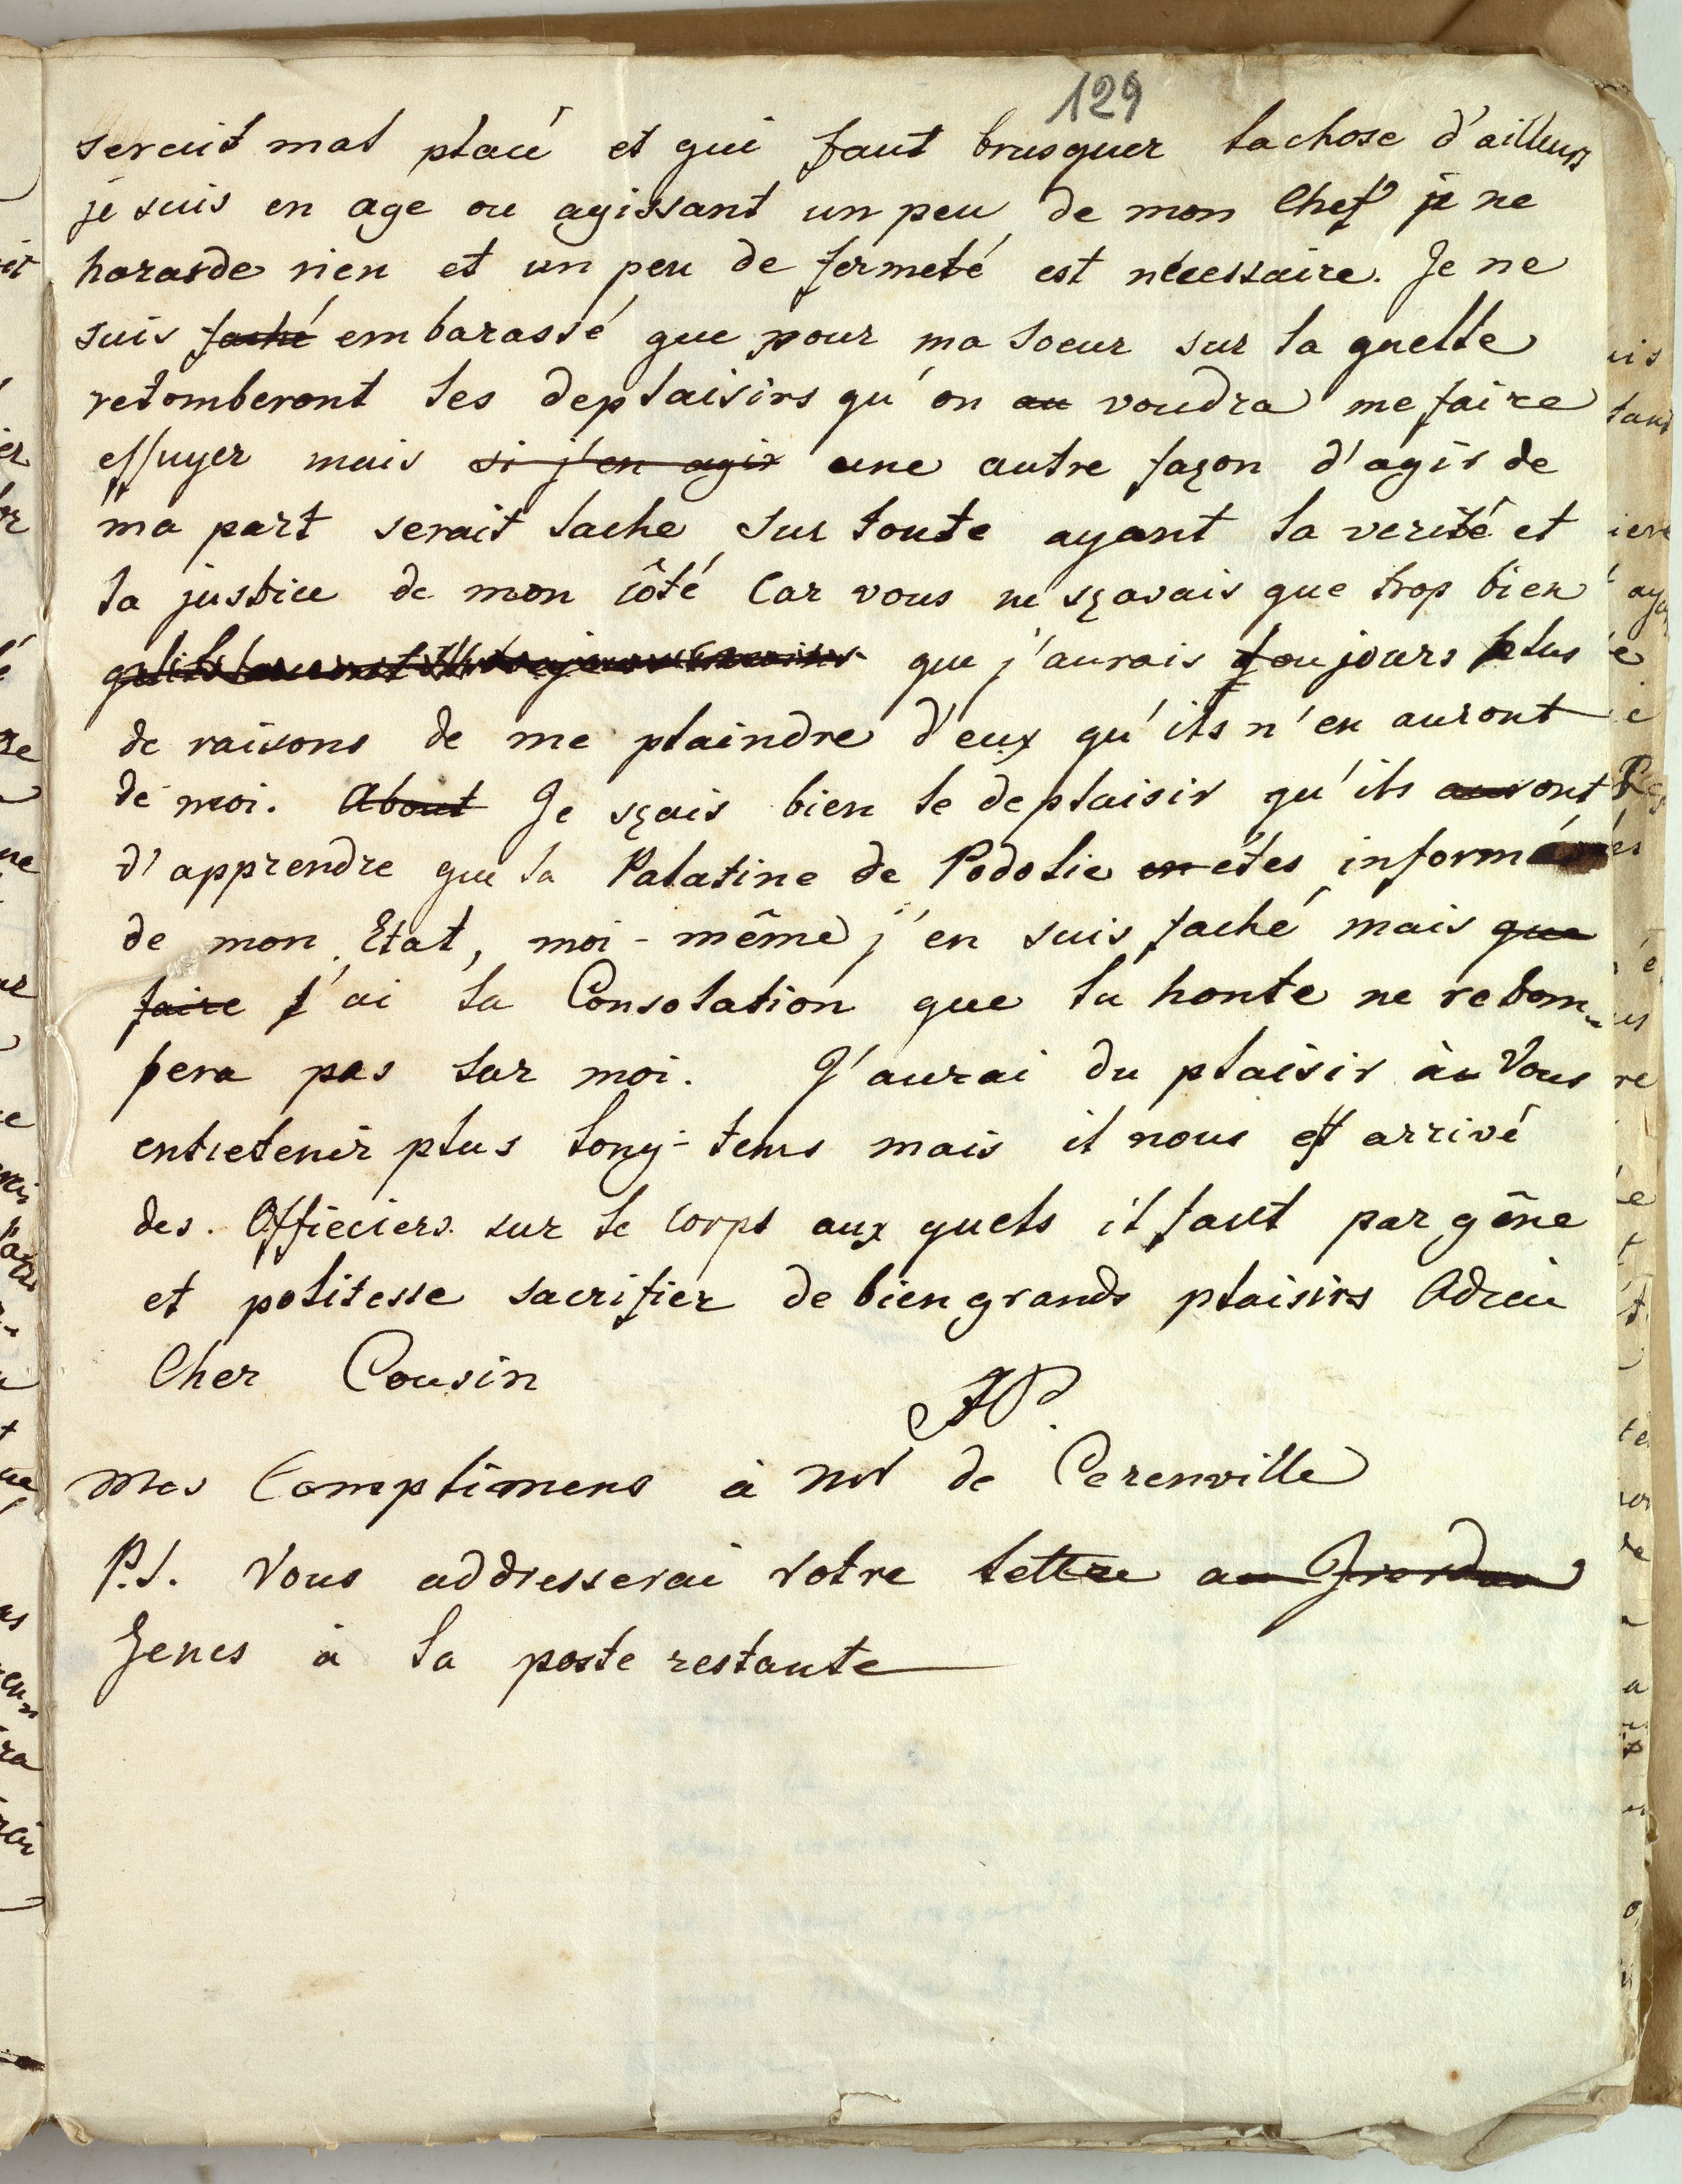 129
serait mal placé et qui faut brusquer la chose d'ailleurs
je suis en age ou agissant un peu de mon Chef je ne
harasde rien et un peu de fermeté est nécessaire. Je ne
suis faché embarassé que pour ma soeur sur la quelle
retomberont les deplaisirs qu'on au voudra me faire
essuyer mais si j'en agis une autre façon d'agir de
ma part serait lache sur toute ayant la verité et
la justice de mon côté Car vous ne sçavais que trop bien
que j'aurais toujours plus
de raisons de me plaindre d'eux qu'ils n'en auront
de moi. About Je sçais bien le deplaisir qu'ils auront
d'apprendre que la Palatine de Podolie en étes informé
de mon Etat, moi-même j'en suis faché mais que
faire j'ai la Consolation que la honte ne retom-
bera pas sur moi. J'aurai du plaisir à Vous
entretenir plus long-tems mais il nous est arrivé
des Officiers sur le corps aux quels il faut par gêne
et politesse sacrifier de bien grands plaisirs Adieu
Cher Cousin
AP.
Mes Complimens à Mr de Cerenville
P.S. Vous addresserai votre lettre au
Jenes à la poste restante